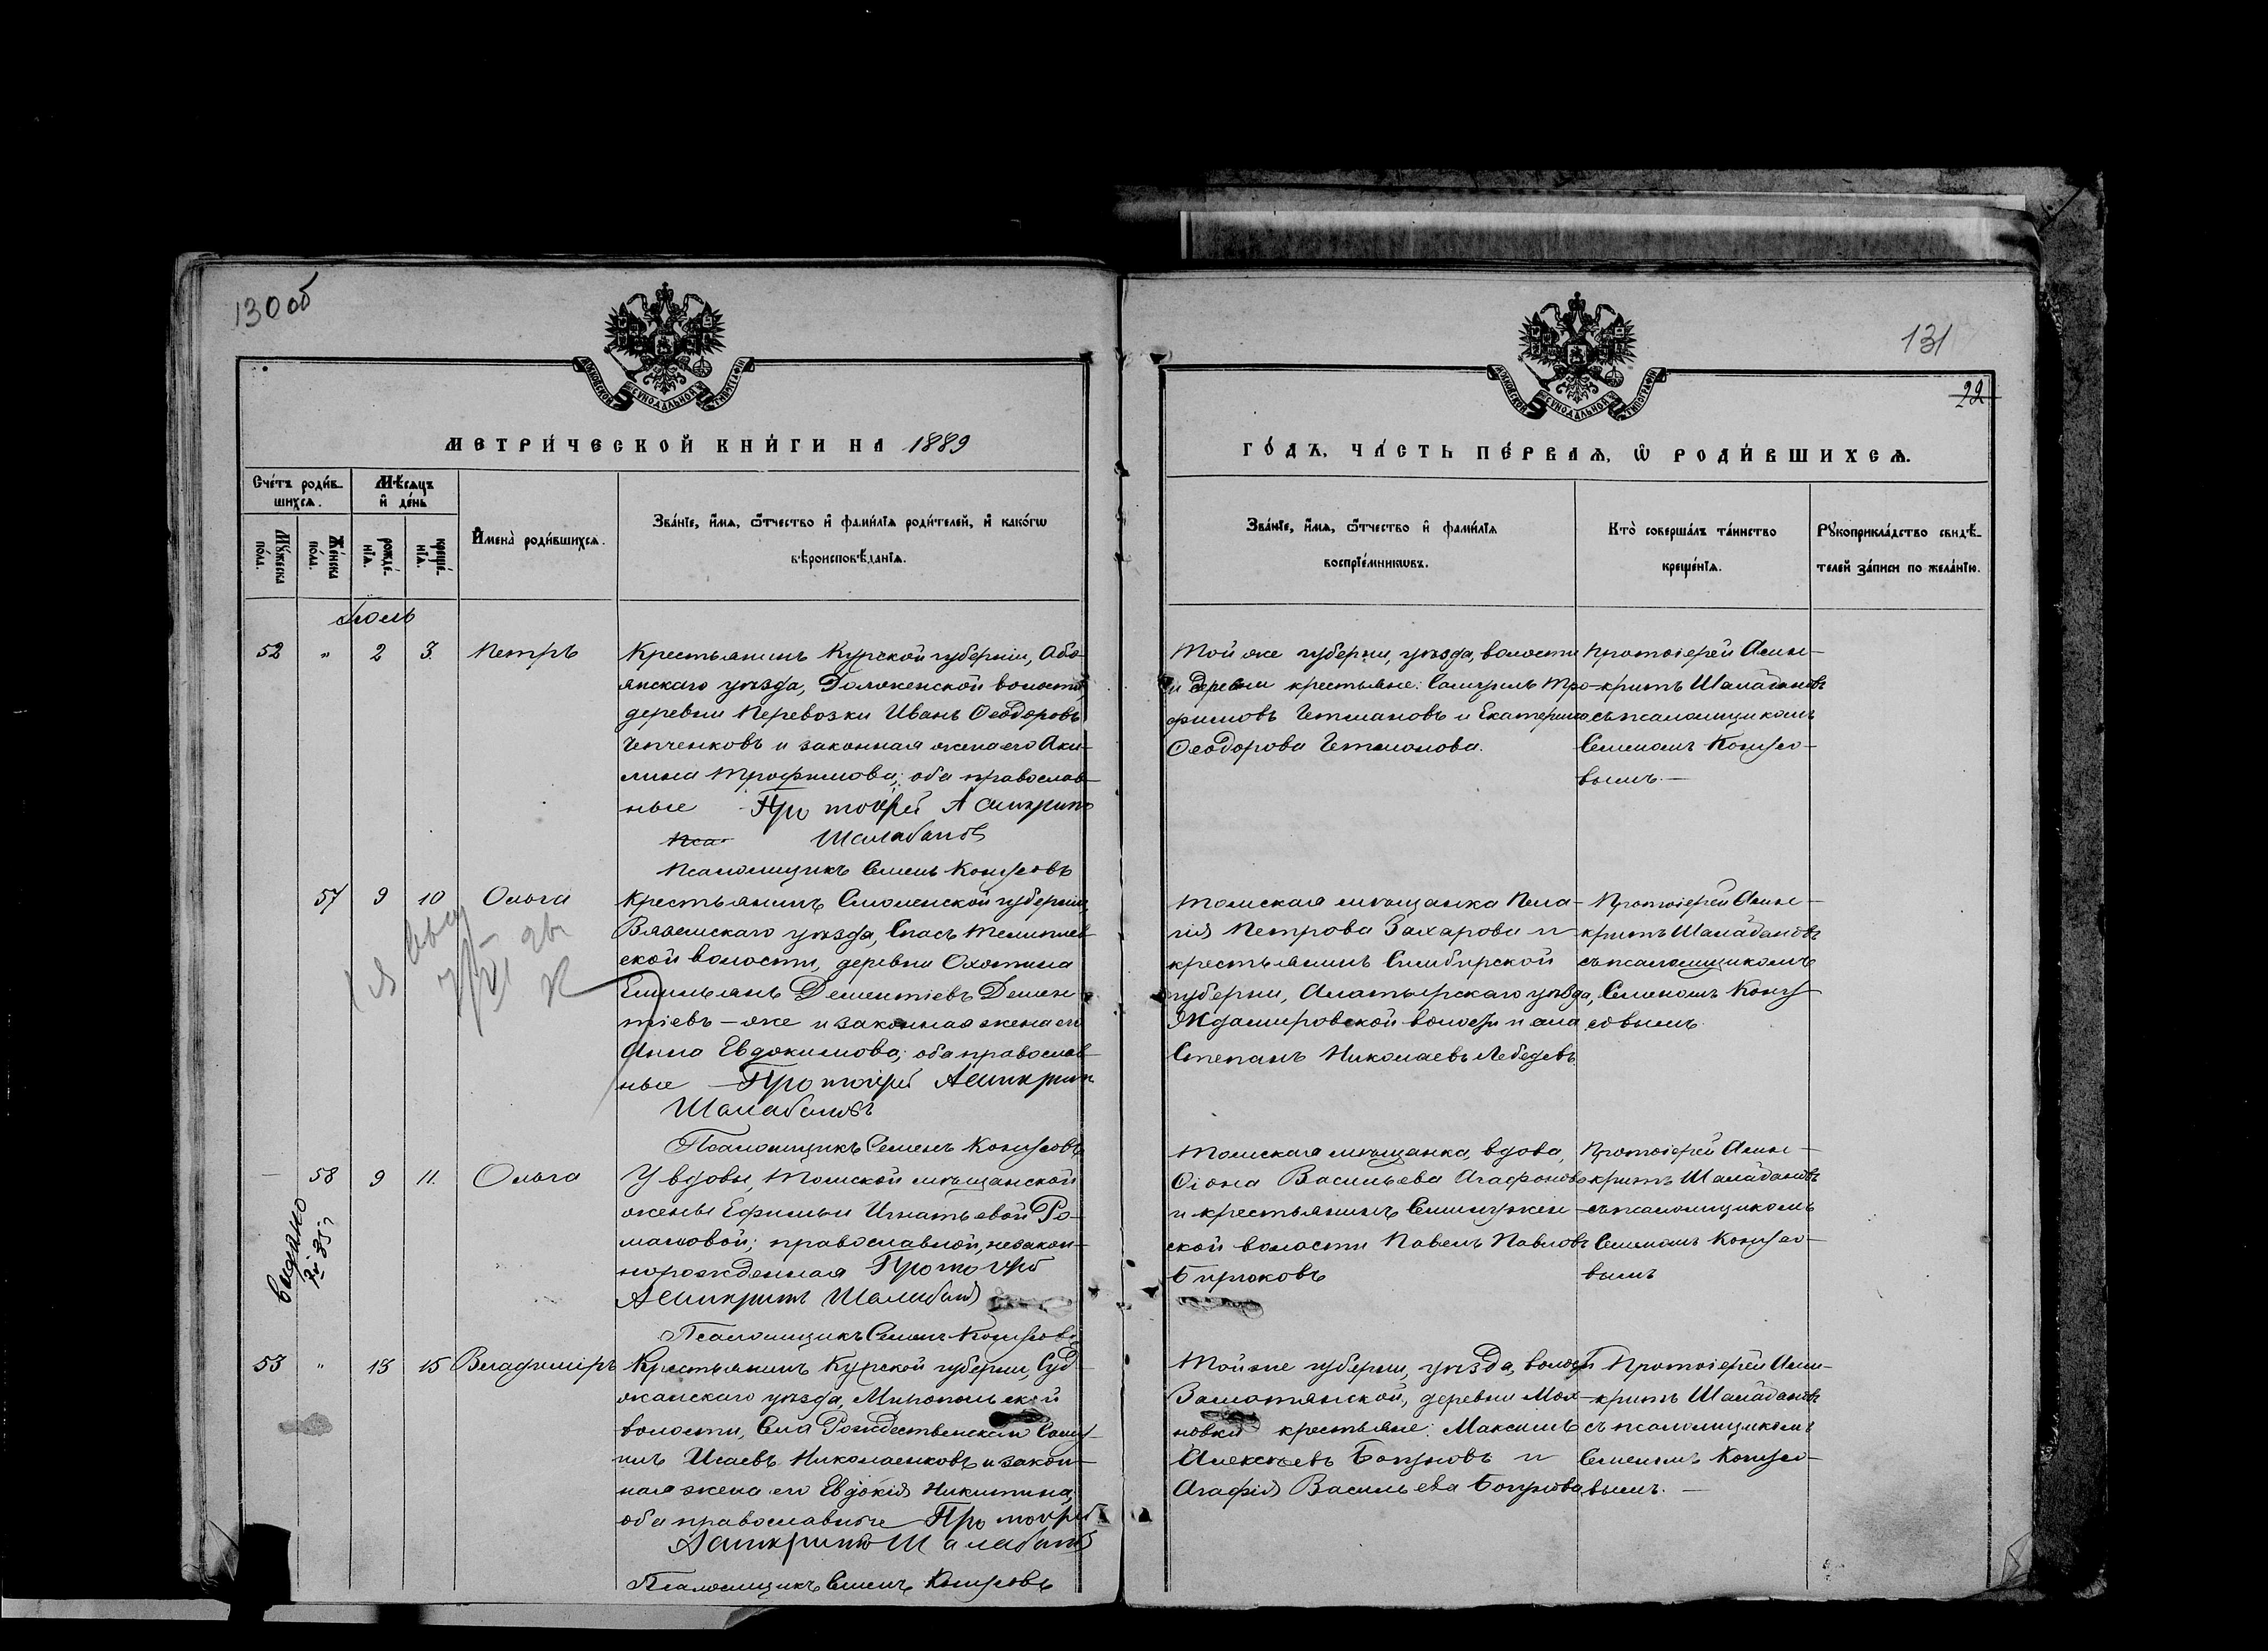 130 об
МОСКОВСКОЙ СѴНОДАЛЬНОЙ ТИПОГРАФІИ
МЕТРИ́ЧЕСКОЙ КНИ́ГИ НА 1889
Сче́тъ роди́в-
шихсѧ.
Мѣ́сѧцъ
и҆ де́нь
Мꙋ́жеска
по́ла.
Же́нска
по́ла.
рожде́-
нїѧ.
креще́-
нїѧ.
И҆мена̀ роди́вшихсѧ.
Зва́нїе, и҆́мѧ, ѻ҆́тчество и҆ фами́лїѧ роди́телей, и҆ како́гѡ
вѣроисповѣ́данїѧ.
Іюль
52 " 2 3. Петръ
Крестьянинъ Курской губерніи, Обо-
янскаго уѣзда, волости,
деревни Перевозки Иванъ Ѳеодоровъ
и законная жена его Аки-
лина Трофимова; оба православ-
ные Протоіерей Асинкритъ
Пса Шалабановъ
Псаломщикъ Семенъ
57 9 10 Ольга
Крестьянинъ Смоленской губерніи,
Вяземскаго уѣзда,
ской волости, деревни Охотина
Емильянъ Дементіевъ Демен-
тіевъ-же и законная жена его
Анна Евдокимова; оба православ-
ные Протоіерей Асинкритъ
Шалабановъ
Псаломщикъ Семенъ
58 9 11. Ольга
У вдовы, Томской мѣщанской
жены Ефимьи Игнатьевой Ро-
мановой; православной, незакон-
норожденная Протоіерей
Асинкритъ Шалабановъ
Псаломщикъ Семенъ
выдано
53 " 13 15 Владиміръ
Крестьянинъ Курской губерніи, Суд-
жанскаго уѣзда, Миропольской
волости, села Рождественскаго
Исаевъ Николаенковъ и закон-
ная жена его Евдокія Никитина,
оба православные Протоіерей
Асинкритъ Шалабановъ
Псаломщикъ Семенъ
131
22
МОСКОВСКОЙ СѴНОДАЛЬНОЙ ТИПОГРАФІИ
ГО́ДЪ, ЧА́СТЬ ПЕ́РВАѦ, Ѡ҆ РОДИ́ВШИХСѦ.
Зва́нїе, и҆́мѧ, ѻ҆́тчество и҆ фами́лїѧ
воспрїе́мникѡвъ.
Кто̀ соверша́лъ та́инство
креще́нїѧ.
Рꙋкоприкла́дство свидѣ́-
телей за́писи по жела́нїю.
Той же губерніи, уѣзда, волости
и деревни крестьяне: Самуилъ Тро-
фимовъ Гетмановъ и Екатерина
Ѳеодорова Гетманова.
Протоіерей Асин-
критъ Шалабановъ
съ псаломщикомъ
Семеномъ
вымъ.
Томская мѣщанка Пела-
гія Петрова Захарова и
крестьянинъ Симбирской
губерніи, Алатырскаго уѣзда,
Ждамировской волости и села
Степанъ Николаевъ Лебедевъ.
Протоіерей Асин-
критъ Шалабановъ
съ псаломщикомъ
Семеномъ
Томская мѣщанка, вдова,
Васильева Агафонова
и крестьянинъ Семилужен-
ской волости Павелъ Павловъ
Бирюковъ
Протоіерей Асин-
критъ Шалабановъ
съ псаломщикомъ
Семеномъ
вымъ
Той же губерніи, уѣзда, волости
Замостянской, деревни
крестьяне: Максимъ
Алексѣевъ и
Агафія Васильева
Протоіерей Асин-
критъ Шалабановъ
съ псаломщикомъ
Семеномъ
вымъ.